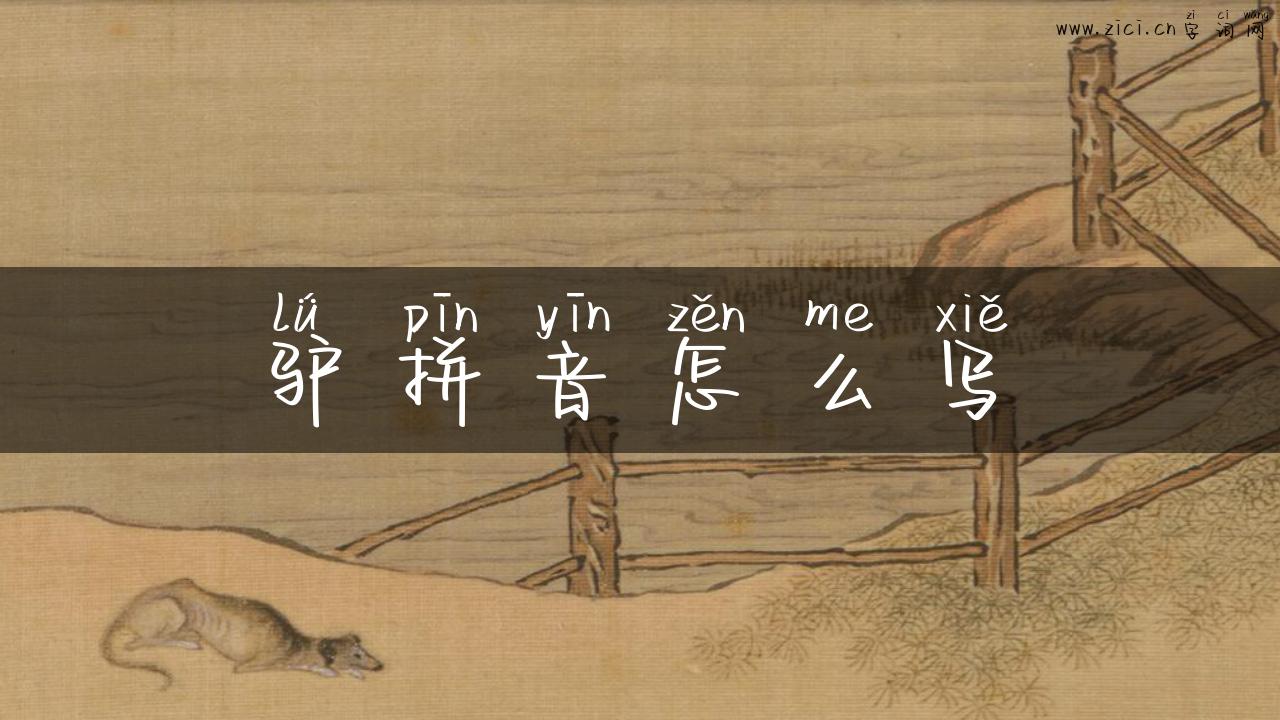 zi ci wang
www.zici.cn 字词网
lǘ pīn yīn zěn me xiě
驴拼音怎么写